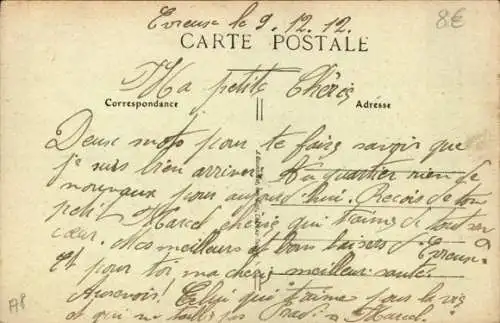 Evreux le 9. 12. 12.
8€
CARTE POSTALE
Ma petite Chérie
Correspondance
Adresse
Deux mots pour te faire savoir que
je suis bien arriver. Au quartier rien de
nouveaux pour aujourd'hui. Recois de ton
petit Marcel cherie qui t'aime de tout son
cœur. Mes meilleurs et bons baisers d'Evreux
Et pour toi ma chérie meilleur santé.
Aurevoir! Celui qui t'aime pour la vie
et qui ne pas Marcel.
A8